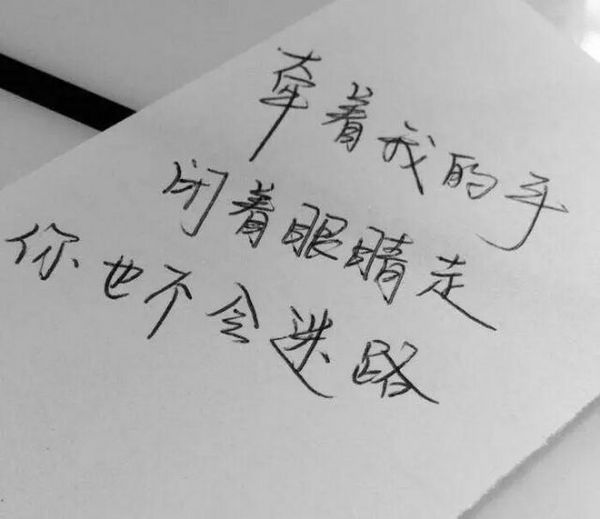 牵着我的手
闭着眼睛走
你也不会迷路